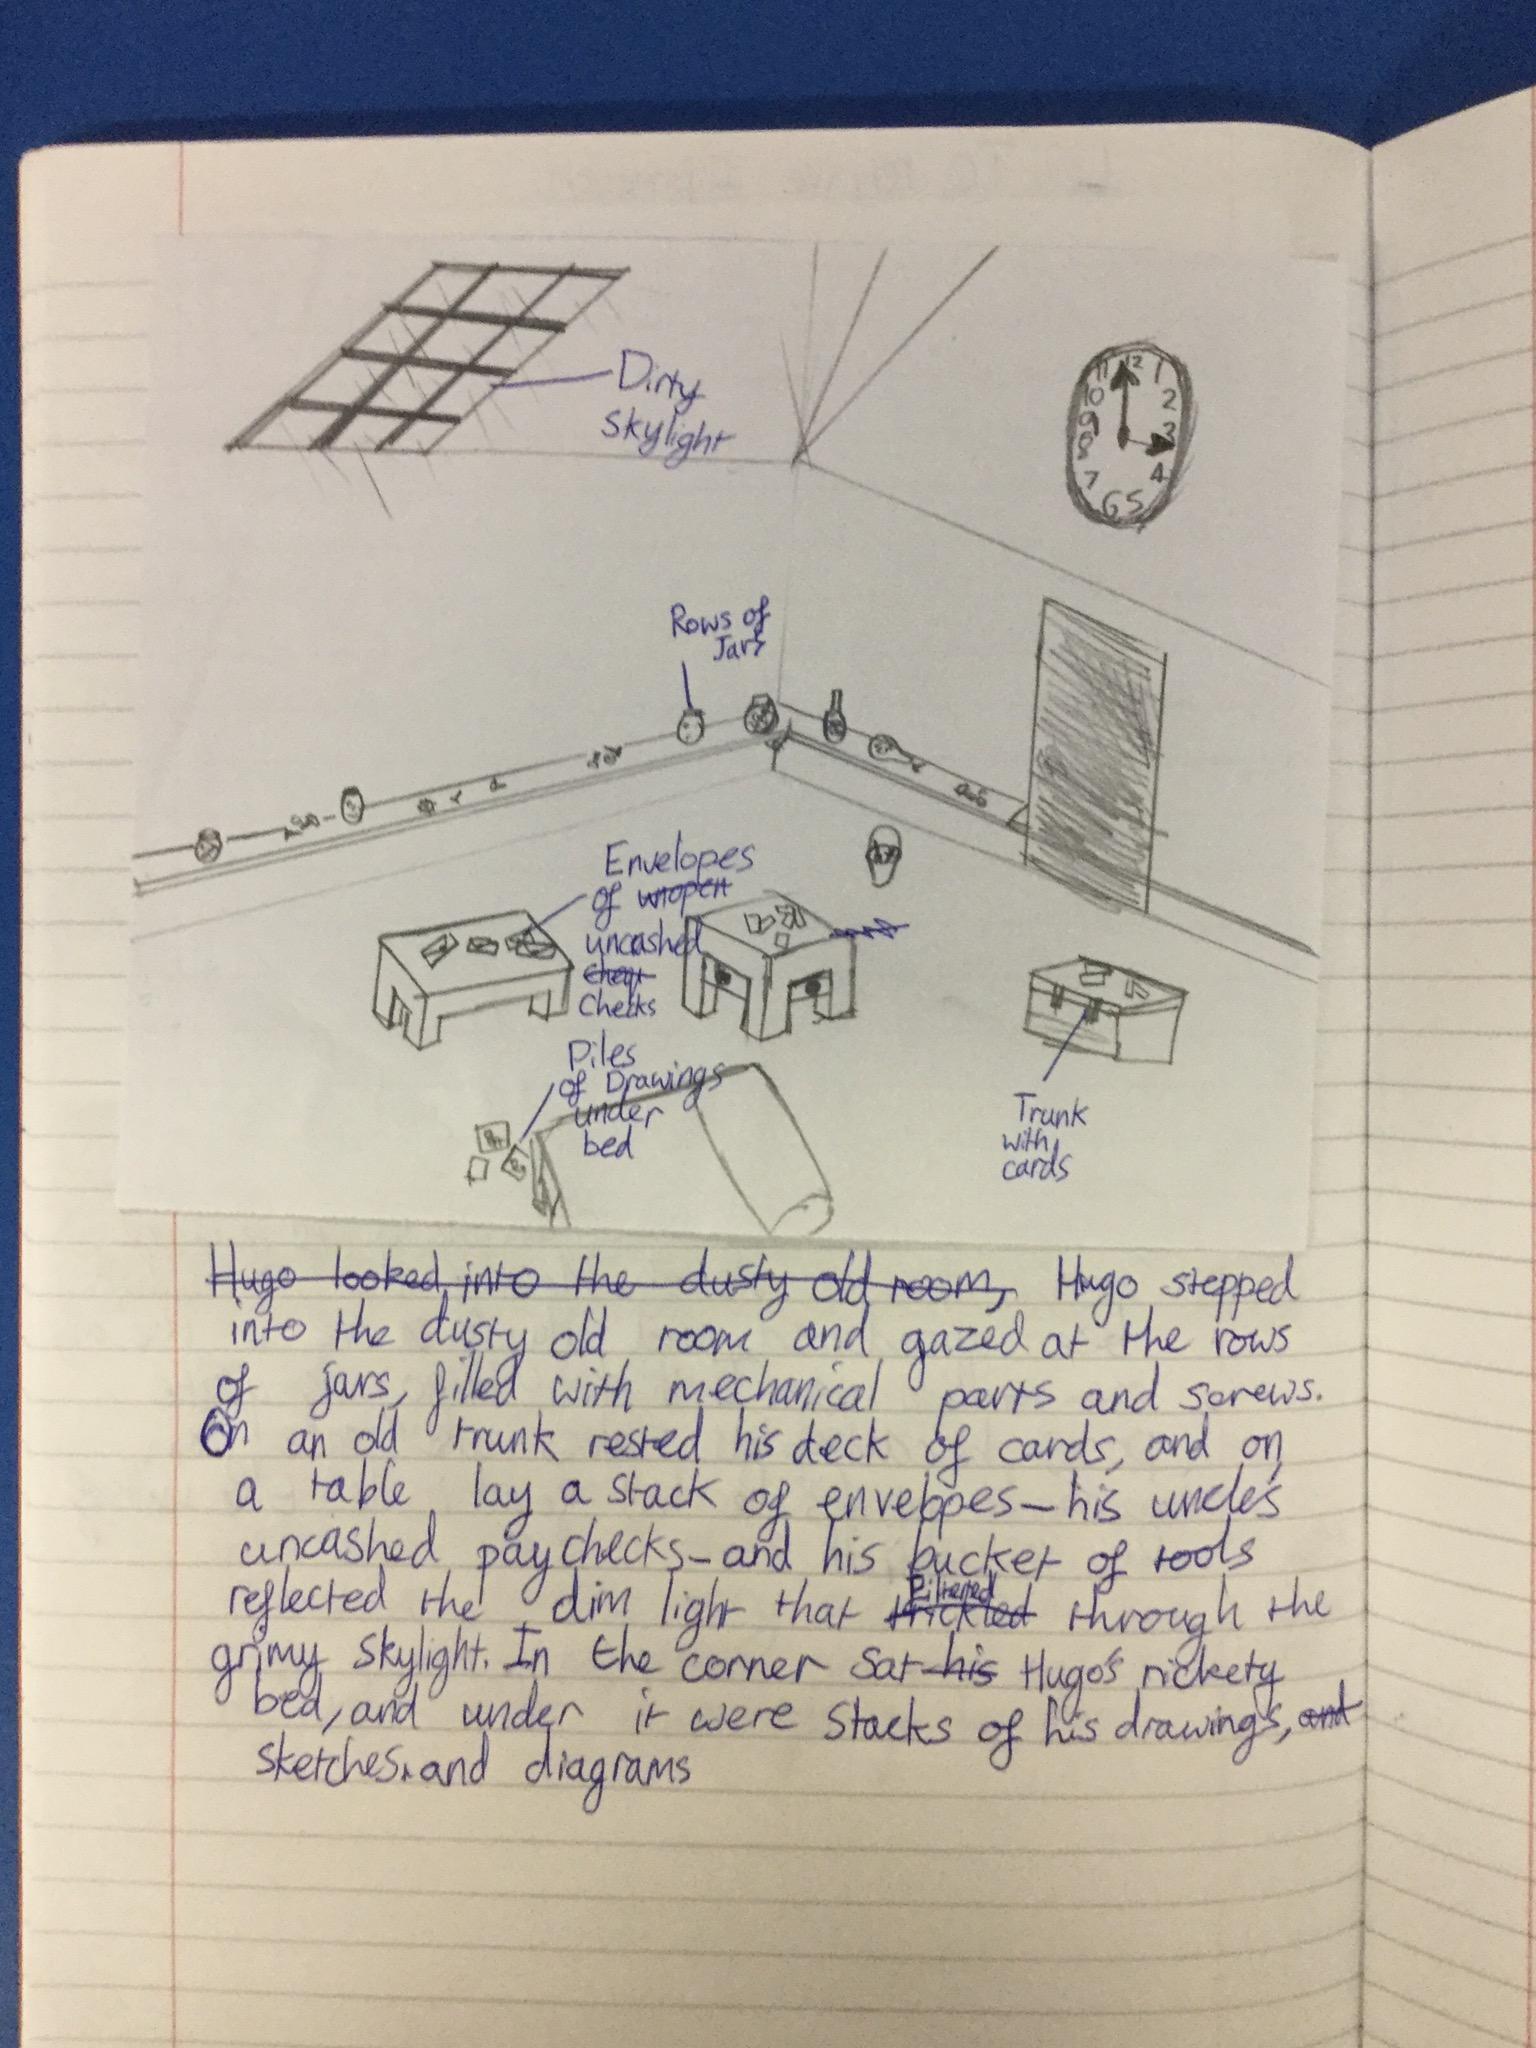 Dirty
Skylight
11 12 1
10 2
9 3
8
7 4
6 5
Rows of
Jars
Envelopes
of unopen
uncashed
cheq
Checks
Piles
of Drawings
under
bed
Trunk
with
cards
Hugo looked into the dusty old room, Hugo stepped
into the dusty old room and gazed at the rows
of jars, filled with mechanical parts and screws.
On an old trunk rested his deck of cards, and on
a table lay a stack of envelopes - his uncle's
uncashed paychecks - and his bucket of tools
Filtered
reflected the dim light that trickled through the
grimy skylight. In the corner sat his Hugo's rickety
bed, and under it were stacks of his drawings, and
sketches, and diagrams